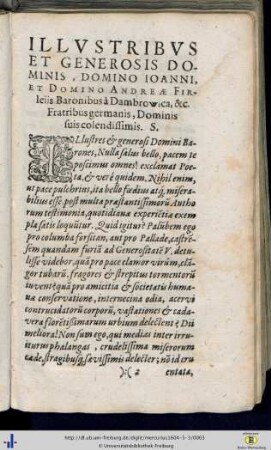 ILLVSTRIBVS
ET GENEROSIS DO-
MINIS, DOMINO IOANNI.
ET DOMINO ANDREÆ FIR-
leiis Baronibus à Dambrowica, &c.
Fratribus germanis, Dominis
suis colendissimis. S.
ILlustres & generosi Domini Ba-
rones, Nulla salus bello, pacem te
poscimus omnes! exclamat Poe-
ta, & verè quidem. Nihil enim,
ut pace pulchrius, ita bello fœdius atq; misera-
bilius esse, post multa præstantissimorũ Autho-
rum testimonia, quotidiana experiẽtia exem
pla satis loquũtur. Quid igitur? Palũbem ego
pro columba forsitan, aut pro Pallade,
sem quandam furiã ad Generositatẽ V. detu-
lisse videbor, quã pro pace clamor virûm, clã-
gor tubarũ, fragores & strepitus tormentorũ
iuvent? quã pro amicitia & societatis huma-
næ conservatione, internecina odia, acervi
contrucidatorũ corporũ, vastationes & cada-
vera florẽtißimarum urbium delectent? Dii
meliora! Non sum ego, qui medias inter irru-
iturus phalangas, crudelissima miserorum
cæde, stragibusq; sævissimis delecter; nõ id cru
):( 2 entata,
http://dl.ub.uni-freiburg.de/diglit/mercurius1604-3-3/0003
© Universitätsbibliothek Freiburg